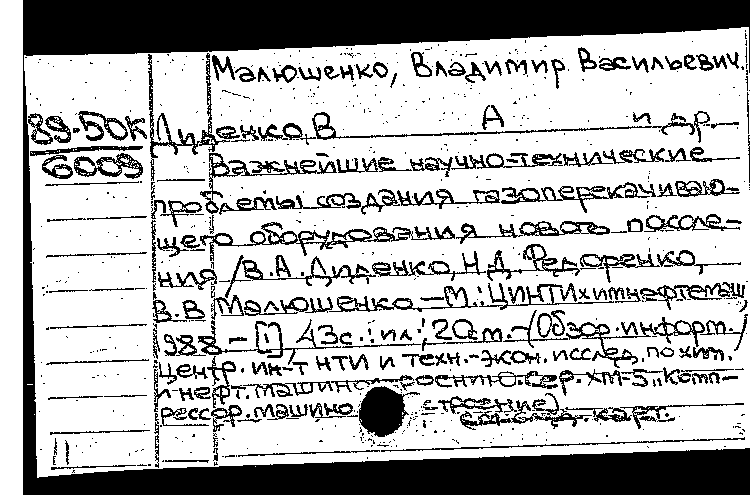 Малюшенко, Владимир Васильевич.
89-БОК
6009
Диденко, В А и др.
Важнейшие научно-технические
проблемы создания газоперекачиваю-
щего оборудования нового поссле-
ния / В.А. Диденко, Н.Д. Федоренко,
В.В Малюшенко. — М.: ЦИНТИхимнефтемаш,
988. — [1], 43с.: ил; 20см. — (Обзор. информ. /
Центр. ин-т НТИ и техн.-экон. исслед. по хим.
и нефт. машиностроению. Сер. ХМ-5 „Комп-
рессор. машино строение)
след. карт.
11